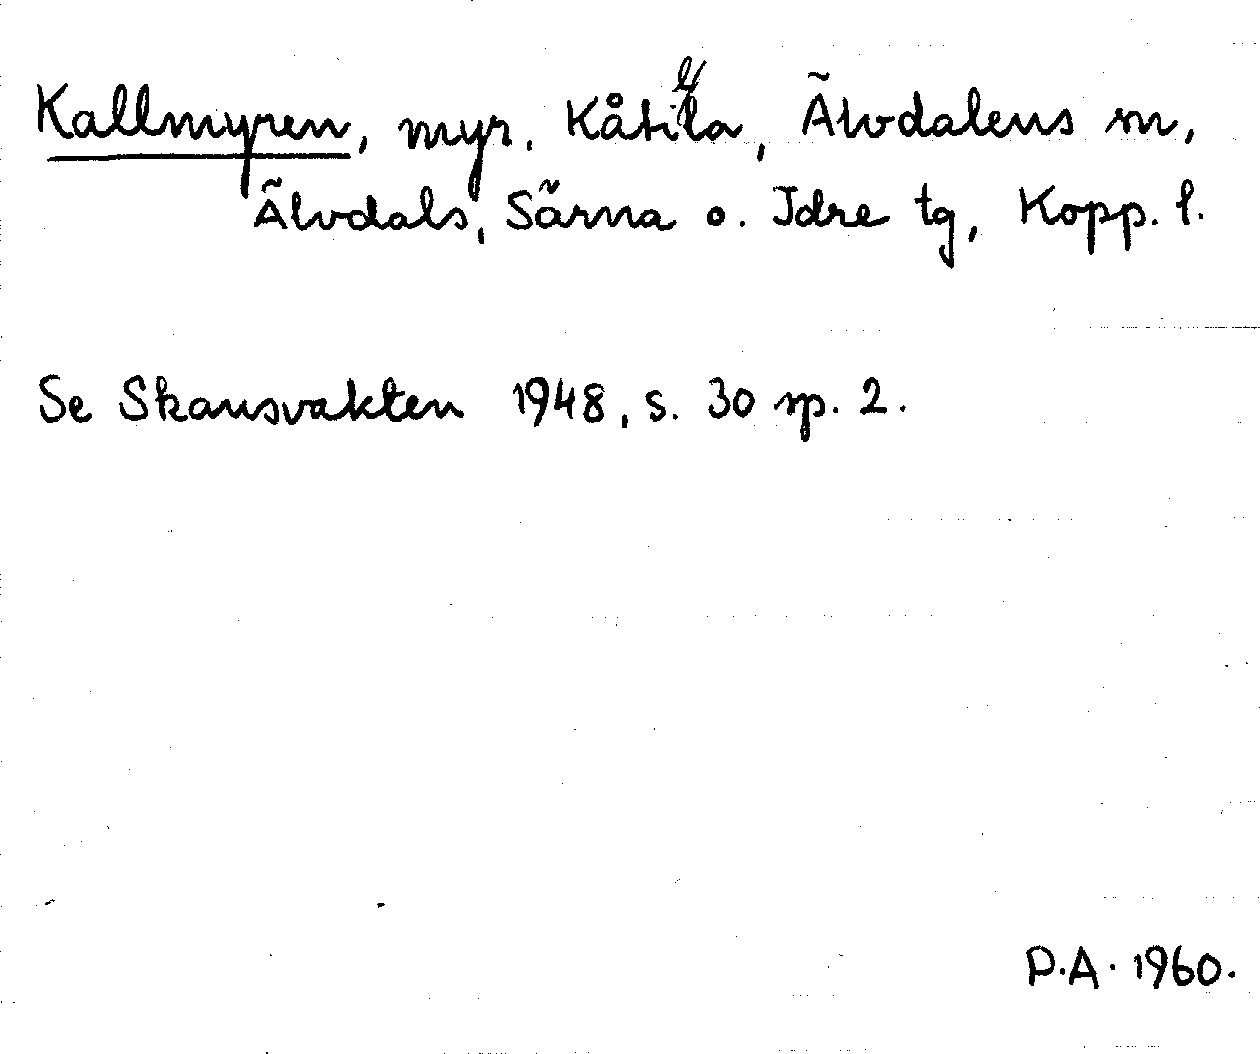 Kallmyren, myr. Kåtilla, Älvdalens sn,
Älvdals, Särna o. Idre tg, Kopp. l.
Se Skansvakten 1948, s. 30 sp. 2.
P.A. 1960.